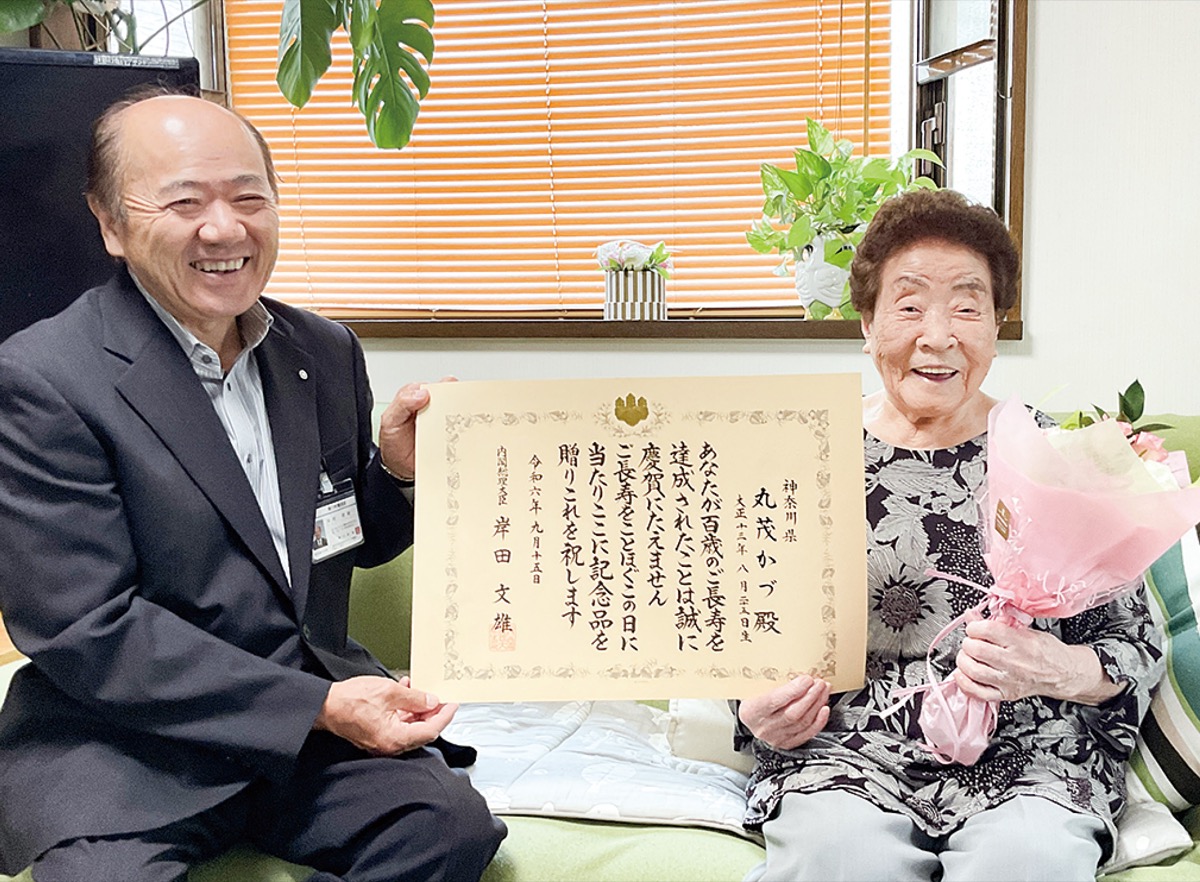 神奈川県
丸茂かづ殿
大正十三年八月二十五日生
あなたが百歳のご長寿を
達成されたことは誠に
慶賀にたえません
ご長寿をことほぐこの日に
当たりここに記念品を
贈りこれを祝します
令和六年九月十五日
内閣総理大臣 岸田文雄